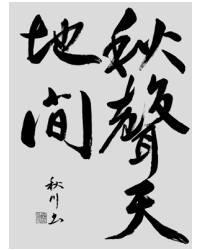 秋聲天
地間
秋川書